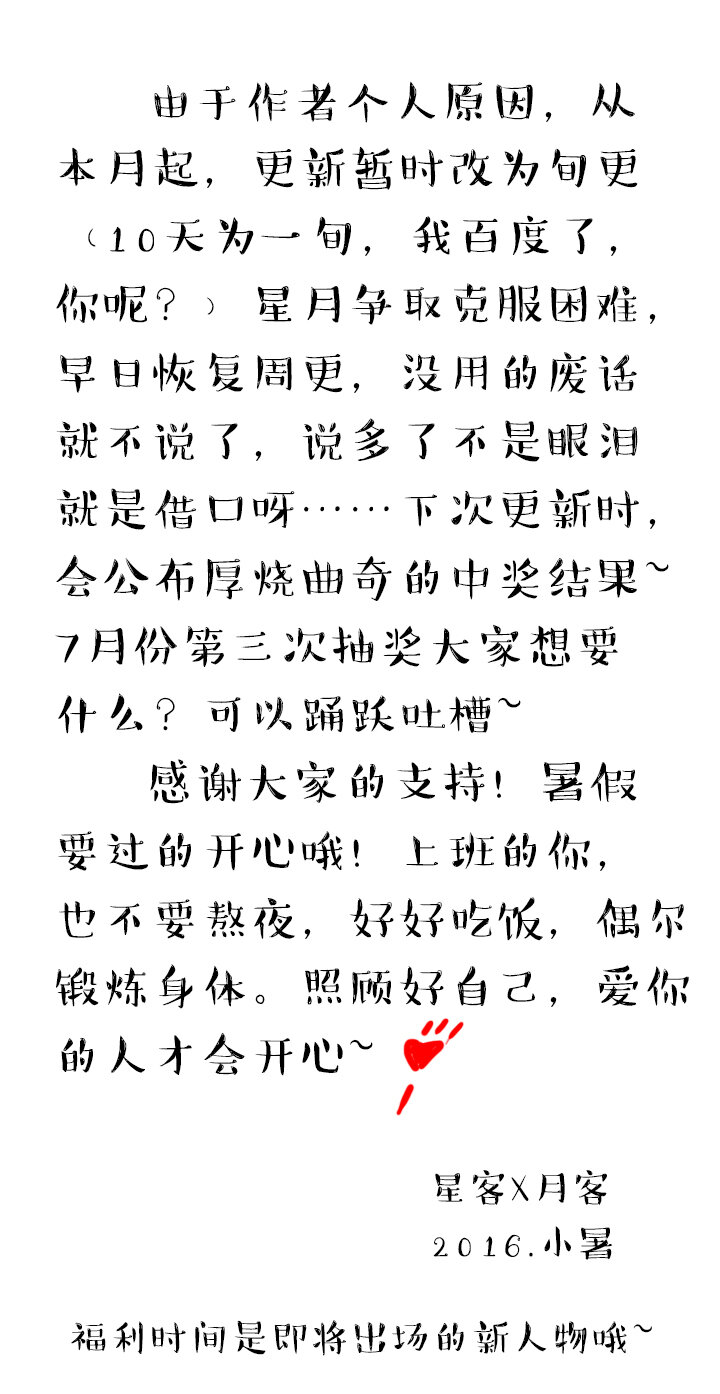 由于作者个人原因，从
本月起，更新暂时改为旬更
（10天为一旬，我百度了，
你呢？）星月争取克服困难，
早日恢复周更，没用的废话
就不说了，说多了不是眼泪
就是借口呀……下次更新时，
会公布厚烧曲奇的中奖结果~
7月份第三次抽奖大家想要
什么？可以踊跃吐槽~
感谢大家的支持！暑假
要过的开心哦！上班的你，
也不要熬夜，好好吃饭，偶尔
锻炼身体。照顾好自己，爱你
的人才会开心~
星客X月客
2016.小暑
福利时间是即将出场的新人物哦~